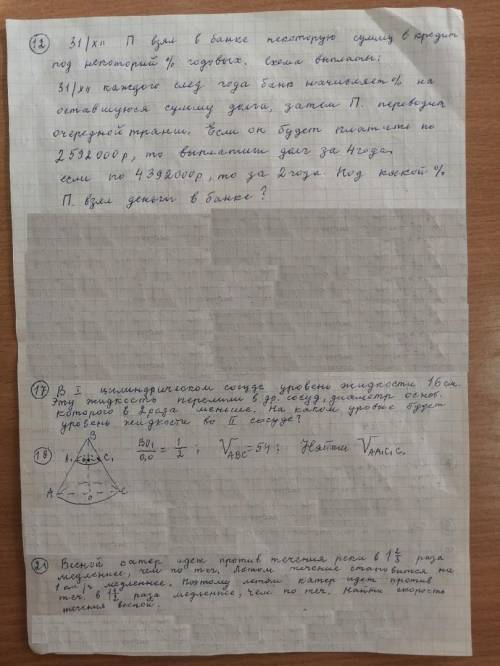 (12) 31/XII П взял в банке некоторую сумму в кредит
под некоторий % годовых. Схема выплаты:
31/XII каждого след года банк начисляет % на
оставшуюся сумму долга, затем П. переводит
очередной транш. Если он будет платить по
2592000р, то выплатит долг за 4 года,
если по 4392000р, то за 2 года. Под какой %
П. взял деньги в банке?
(17) В I цилиндрическом сосуде уровень жидкости 16 см.
Эту жидкость перелили в др. сосуд, диаметр основ.
которого в 2 раза меньше. На каком уровне будет
уровень жидкости во II сосуде?
(18) BO₁/O₁O = 1/2; V ABC = 54; Найти V AA₁C₁C.
B
A₁ C₁
A O C
(21) Весной катер идет против течения реки в 1 2/3 раза
медленнее, чем по теч. Летом течение становится на
1 км/ч медленнее. Поэтому летом катер идет против
теч. в 1 1/2 раза медленнее, чем по теч. Найти скорость
течения весной.